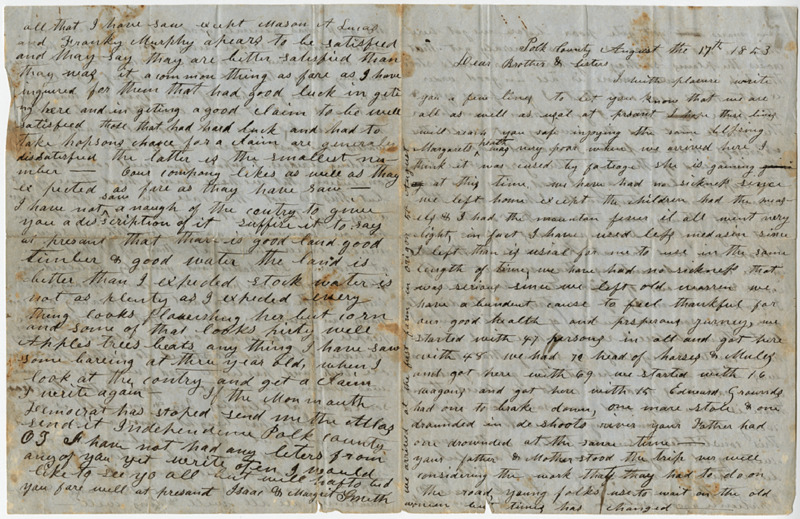 Polk County August the 17th 1853
Dear Brother & Sister
I with plasure write
you a few lines to let you know that we are
all as well as usal at presant I hope these lines
will reach you safe injoying the same blessing
Margarets health was very poor when we arived here I
think it was cused by fatiege she is gaining
at this time, we have had no sickness since
we left home except the children had the meas
els & I had the mountain fever it all went very
light in fact I have used less medason since
I left than is usual for me to use in the same
length of time, we have had no sickness that
was serious since we left old warren we
have abundent cause to feel thankful for
our good health and prosperous jurney, we
started with 47 persons in all and got here
with 48 we had 72 head of horses & Mules
and got here with 69 we started with 16
wagons and got here with 15 Edward Grounds
had one to brake down, one mare stole & one
drounded in de shoots river your Father had
one drounded at the same time
your father & Mother stood the trip very well
considering the work that thay had to do on
the road, young folks use to wait on the old
women but times has changed
we arived at the in oregon
all that I have saw except Mason & Lucas
and Franky Murphy apears to be satisfied
and thay say thay are better satisfied than
thay was, it a common thing as fare as I have
inquired for them that had good luck in geting
here and in geting a good claim to be well
satisfied those that had hard luck and had to
take hopsons choice for a claim are generaly
dissatisfied the latter is the smallest nu-
mber — Our company likes as well as thay
expected as fare as thay have saw —
I have not saw a nough of the contry to give
you a discription of it suffise it to say
at presant that thare is good land good
timber & good water the land is
better than I expected stock water is
not as plenty as I expected every
thing looks flowershing her but corn
and some of that looks pirty well
Apples trees beats any thing I have saw
some bareing at three yeas old, when I
look at the contry and get a claim
I write again if the Monmouth
Democrat has stoped send me the atlas
send it Independence Polk county
OT I have not had any leters from
any of you yet write often I would
like to see yo all but will hafto bid
you fare well at presant Isaac & Margret Smith